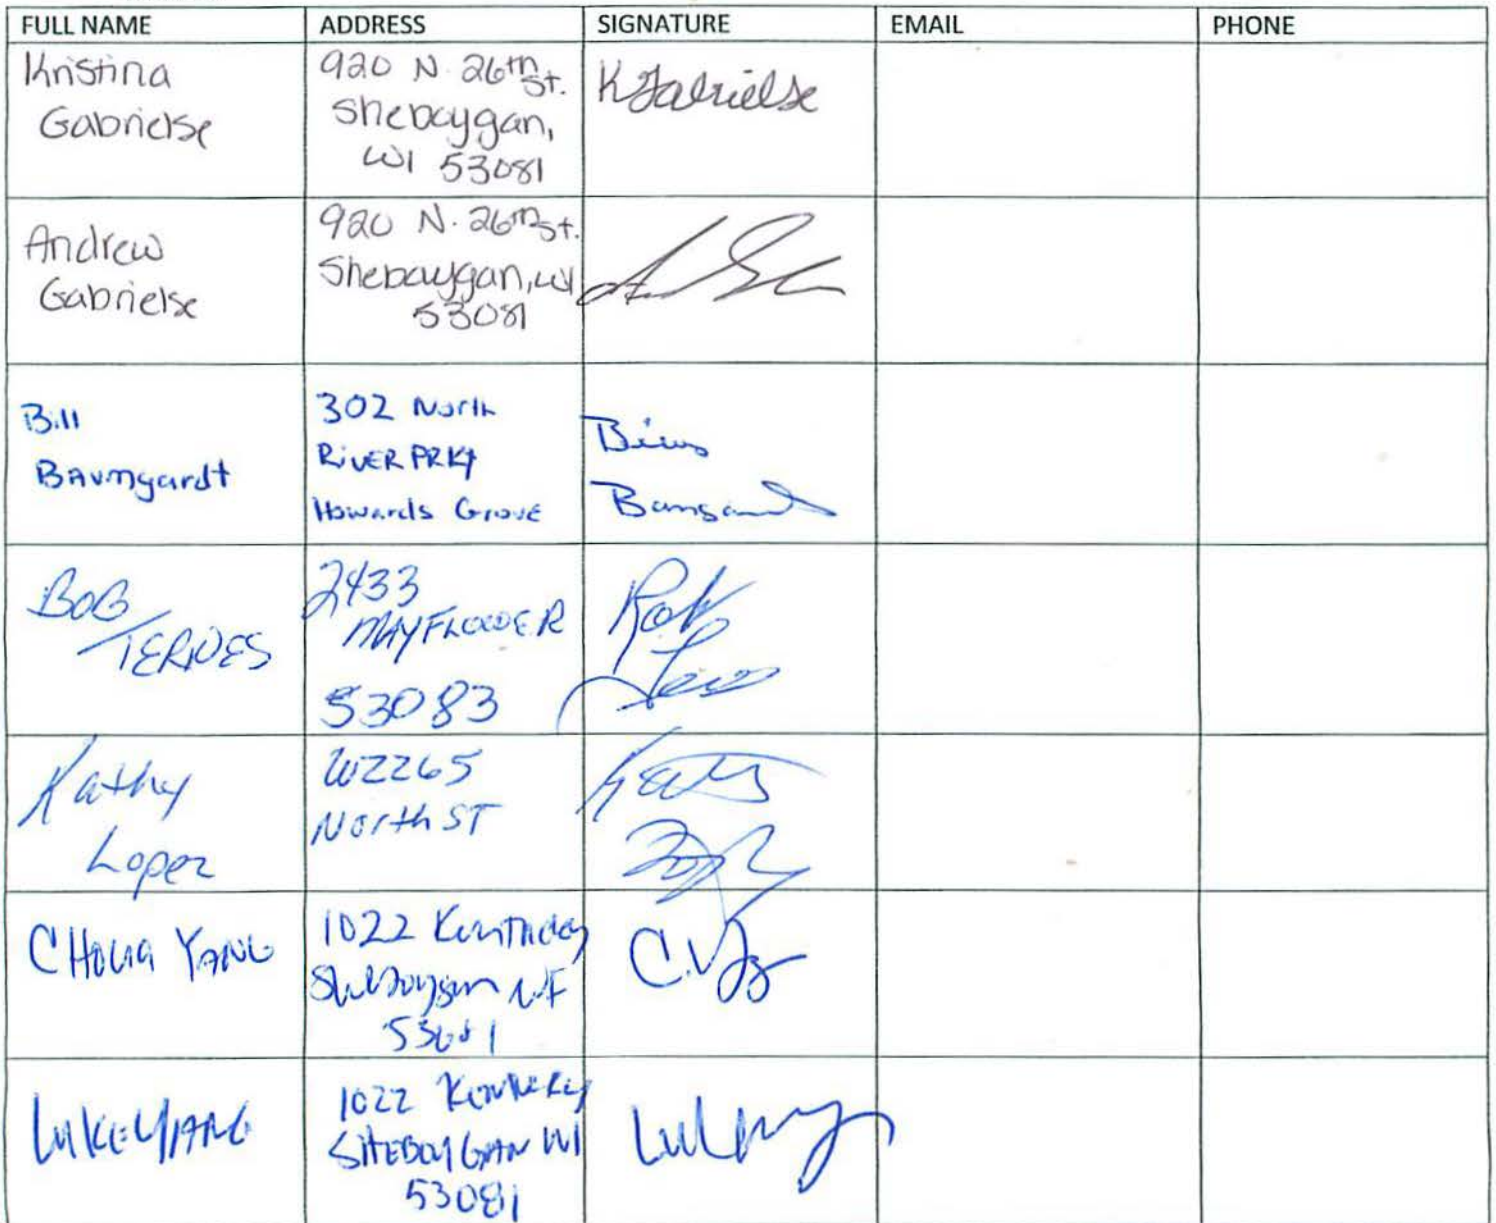 FULL NAME ADDRESS SIGNATURE EMAIL PHONE
Kristina
Gabrielse
920 N. 26th St.
Sheboygan,
WI 53081
KGabrielse
Andrew
Gabrielse
920 N. 26th St.
Sheboygan, WI
53081
Bill
Baumgardt
302 North
RIVER PRKY
Howards Grove
BOB
TERVES
2433
MAYFLOWER
53083
Kathy
Lopez
W2265
North ST
CHOUA YANG
1022 Kentucky
Sheboygan WI
53081
LUKE YANG
1022 Kentucky
SHEBOYGAN WI
53081